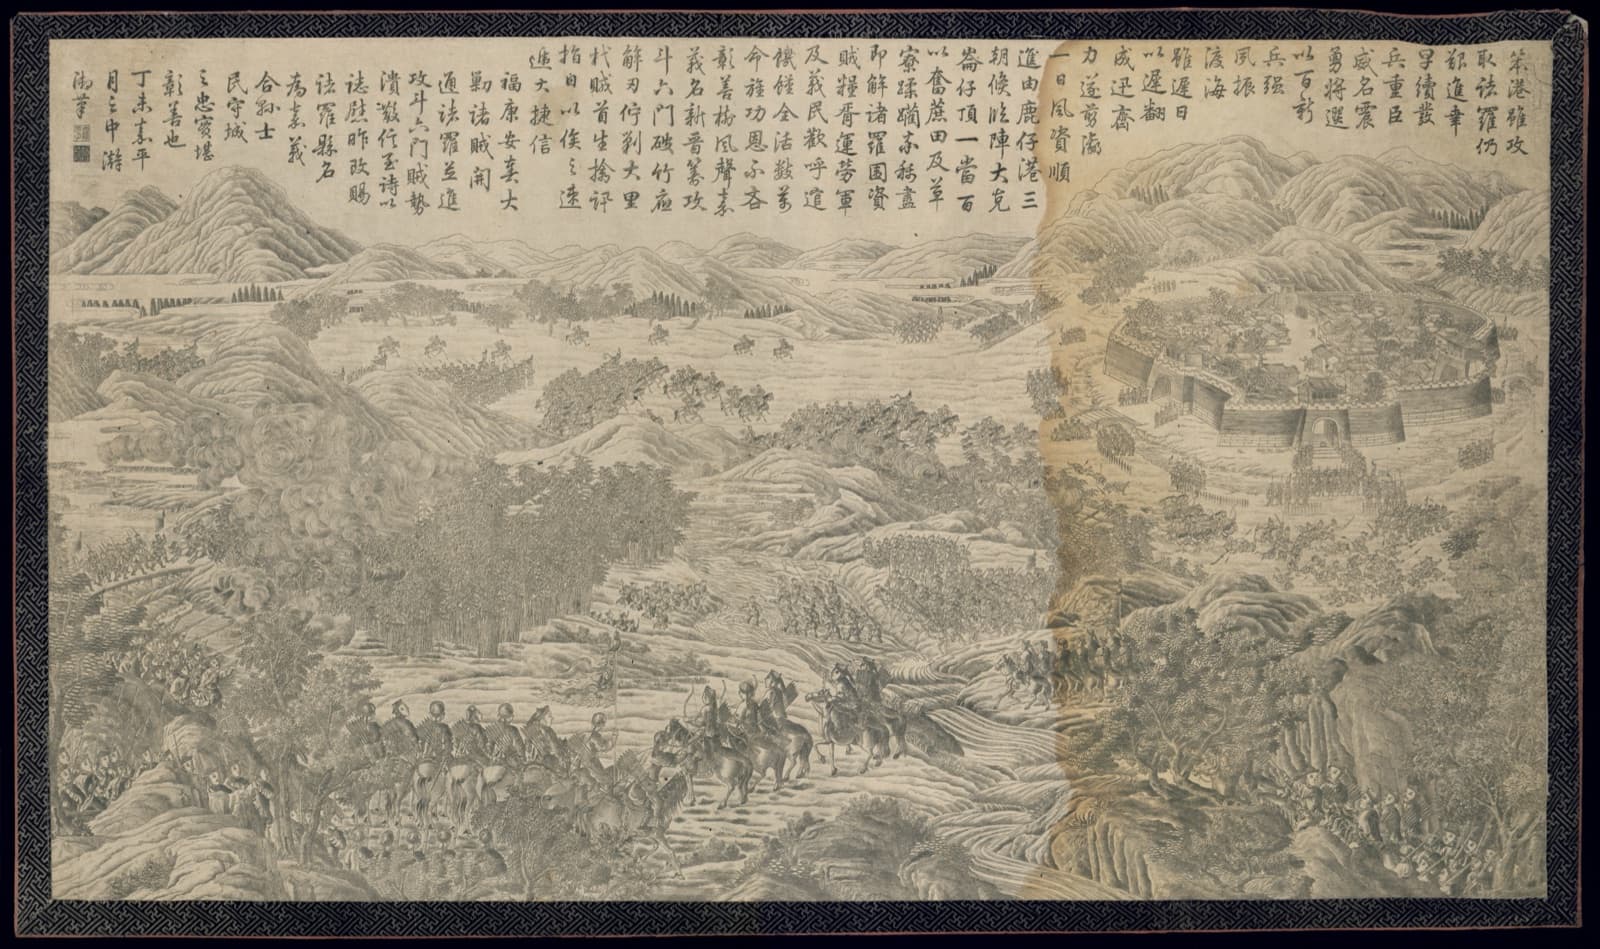 笨港雖攻
取諸羅仍
艱進幸
早續發
兵重臣
威名震
勇將選
以百
兵强
風振
渡海
雖遲日
以遲翻
成迅齊
力遂剪
一日風資順
進由鹿仔港三
朝候收陣大克
崙仔頂一當百
以奮蔗田及草
寮蹂躪亦盡
即解諸羅圍資
賊糧胥運勞軍
及義民歡呼道
饑饉全活數萬
命旌功恩不吝
彰善樹風聲嘉
義名新晉籌攻
斗六門破竹應
解刃佇剿大里
杙賊首生擒訊
指日以俟之速
遞大捷信
福康安奏大
剿諸賊開
通諸羅並進
攻斗六門賊勢
潰散信至詩以
誌慰昨改賜
諸羅縣名
為嘉義
士
民守城
之忠實堪
彰善也
丁未嘉平
月之中澣
御筆